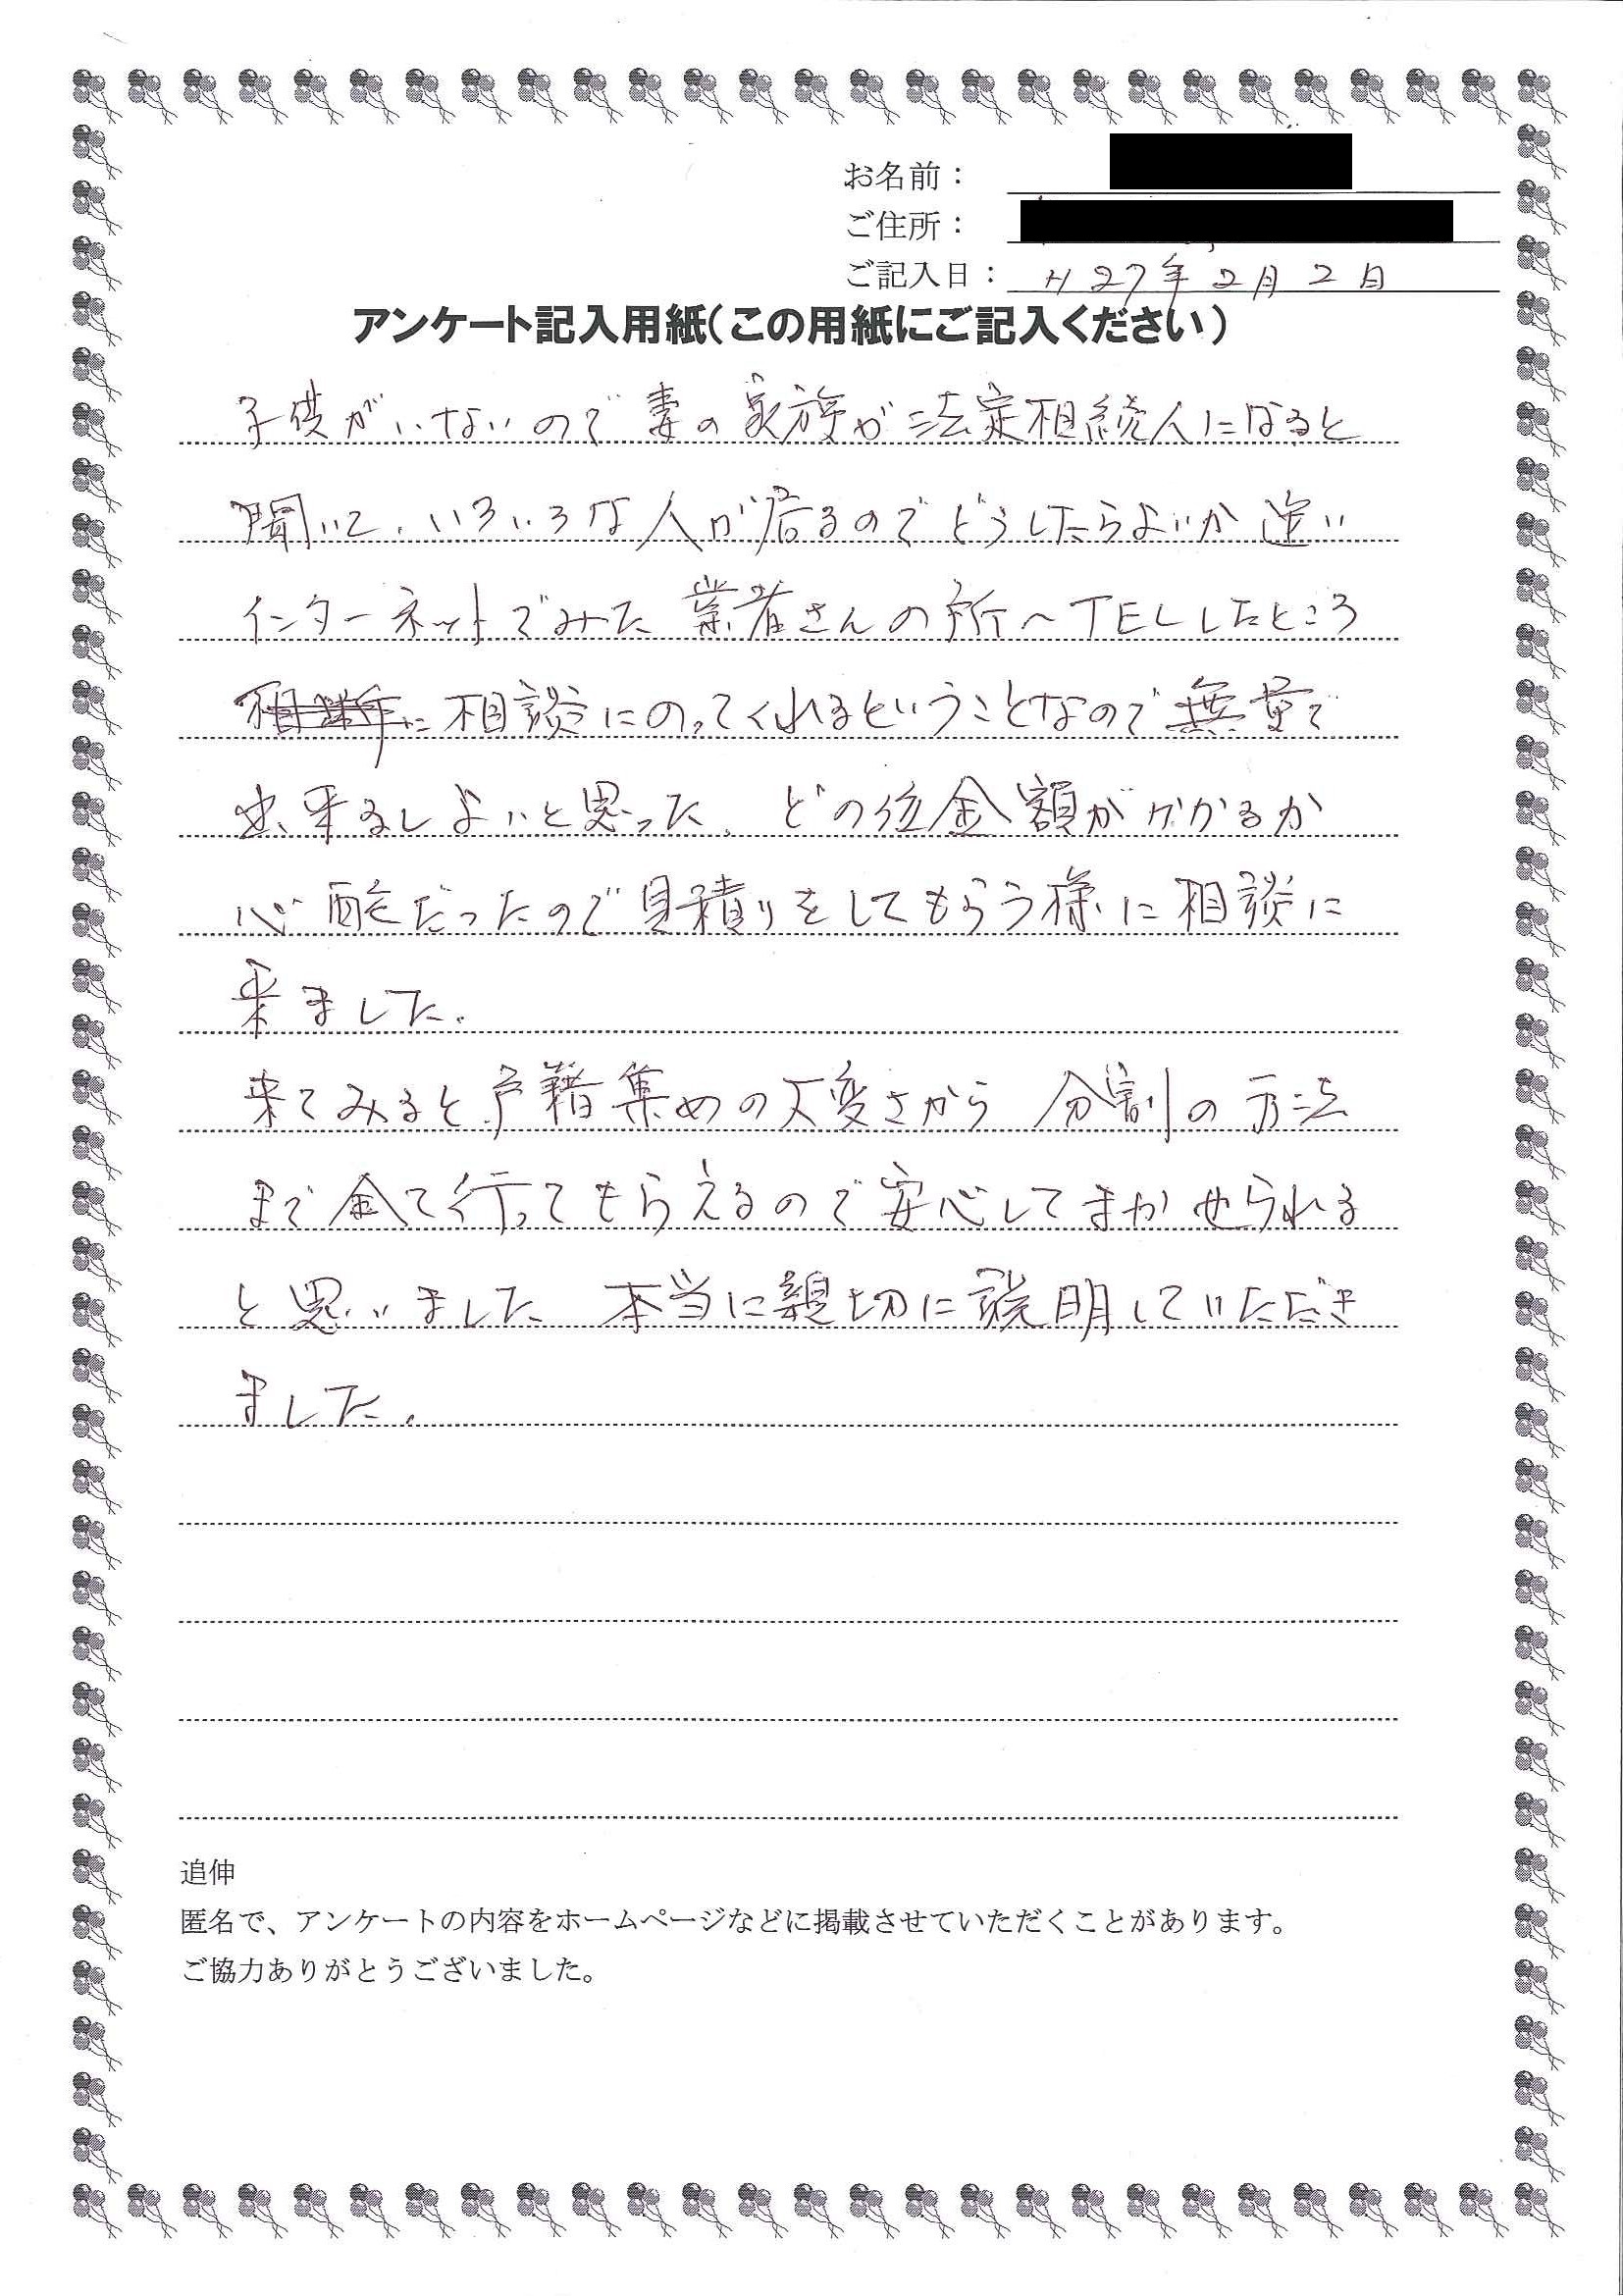 お名前：
ご住所：
ご記入日： H27年2月2日
アンケート記入用紙（この用紙にご記入ください）
子供がいないので妻の家族が法定相続人になると
聞いて、いろいろな人が居るのでどうしたらよいか迷い
インターネットでみた業者さんの所へTELしたところ
に相談にのってくれるということなので無量で
出来るしよいと思った。どの位金額がかかるか
心配だったので見積りをしてもらう様に相談に
来ました。
来てみると戸籍集めの大変さから分割の方法
まで全て行ってもらえるので安心してまかせられる
と思いました 本当に親切に説明していただき
ました。
追伸
匿名で、アンケートの内容をホームページなどに掲載させていただくことがあります。
ご協力ありがとうございました。